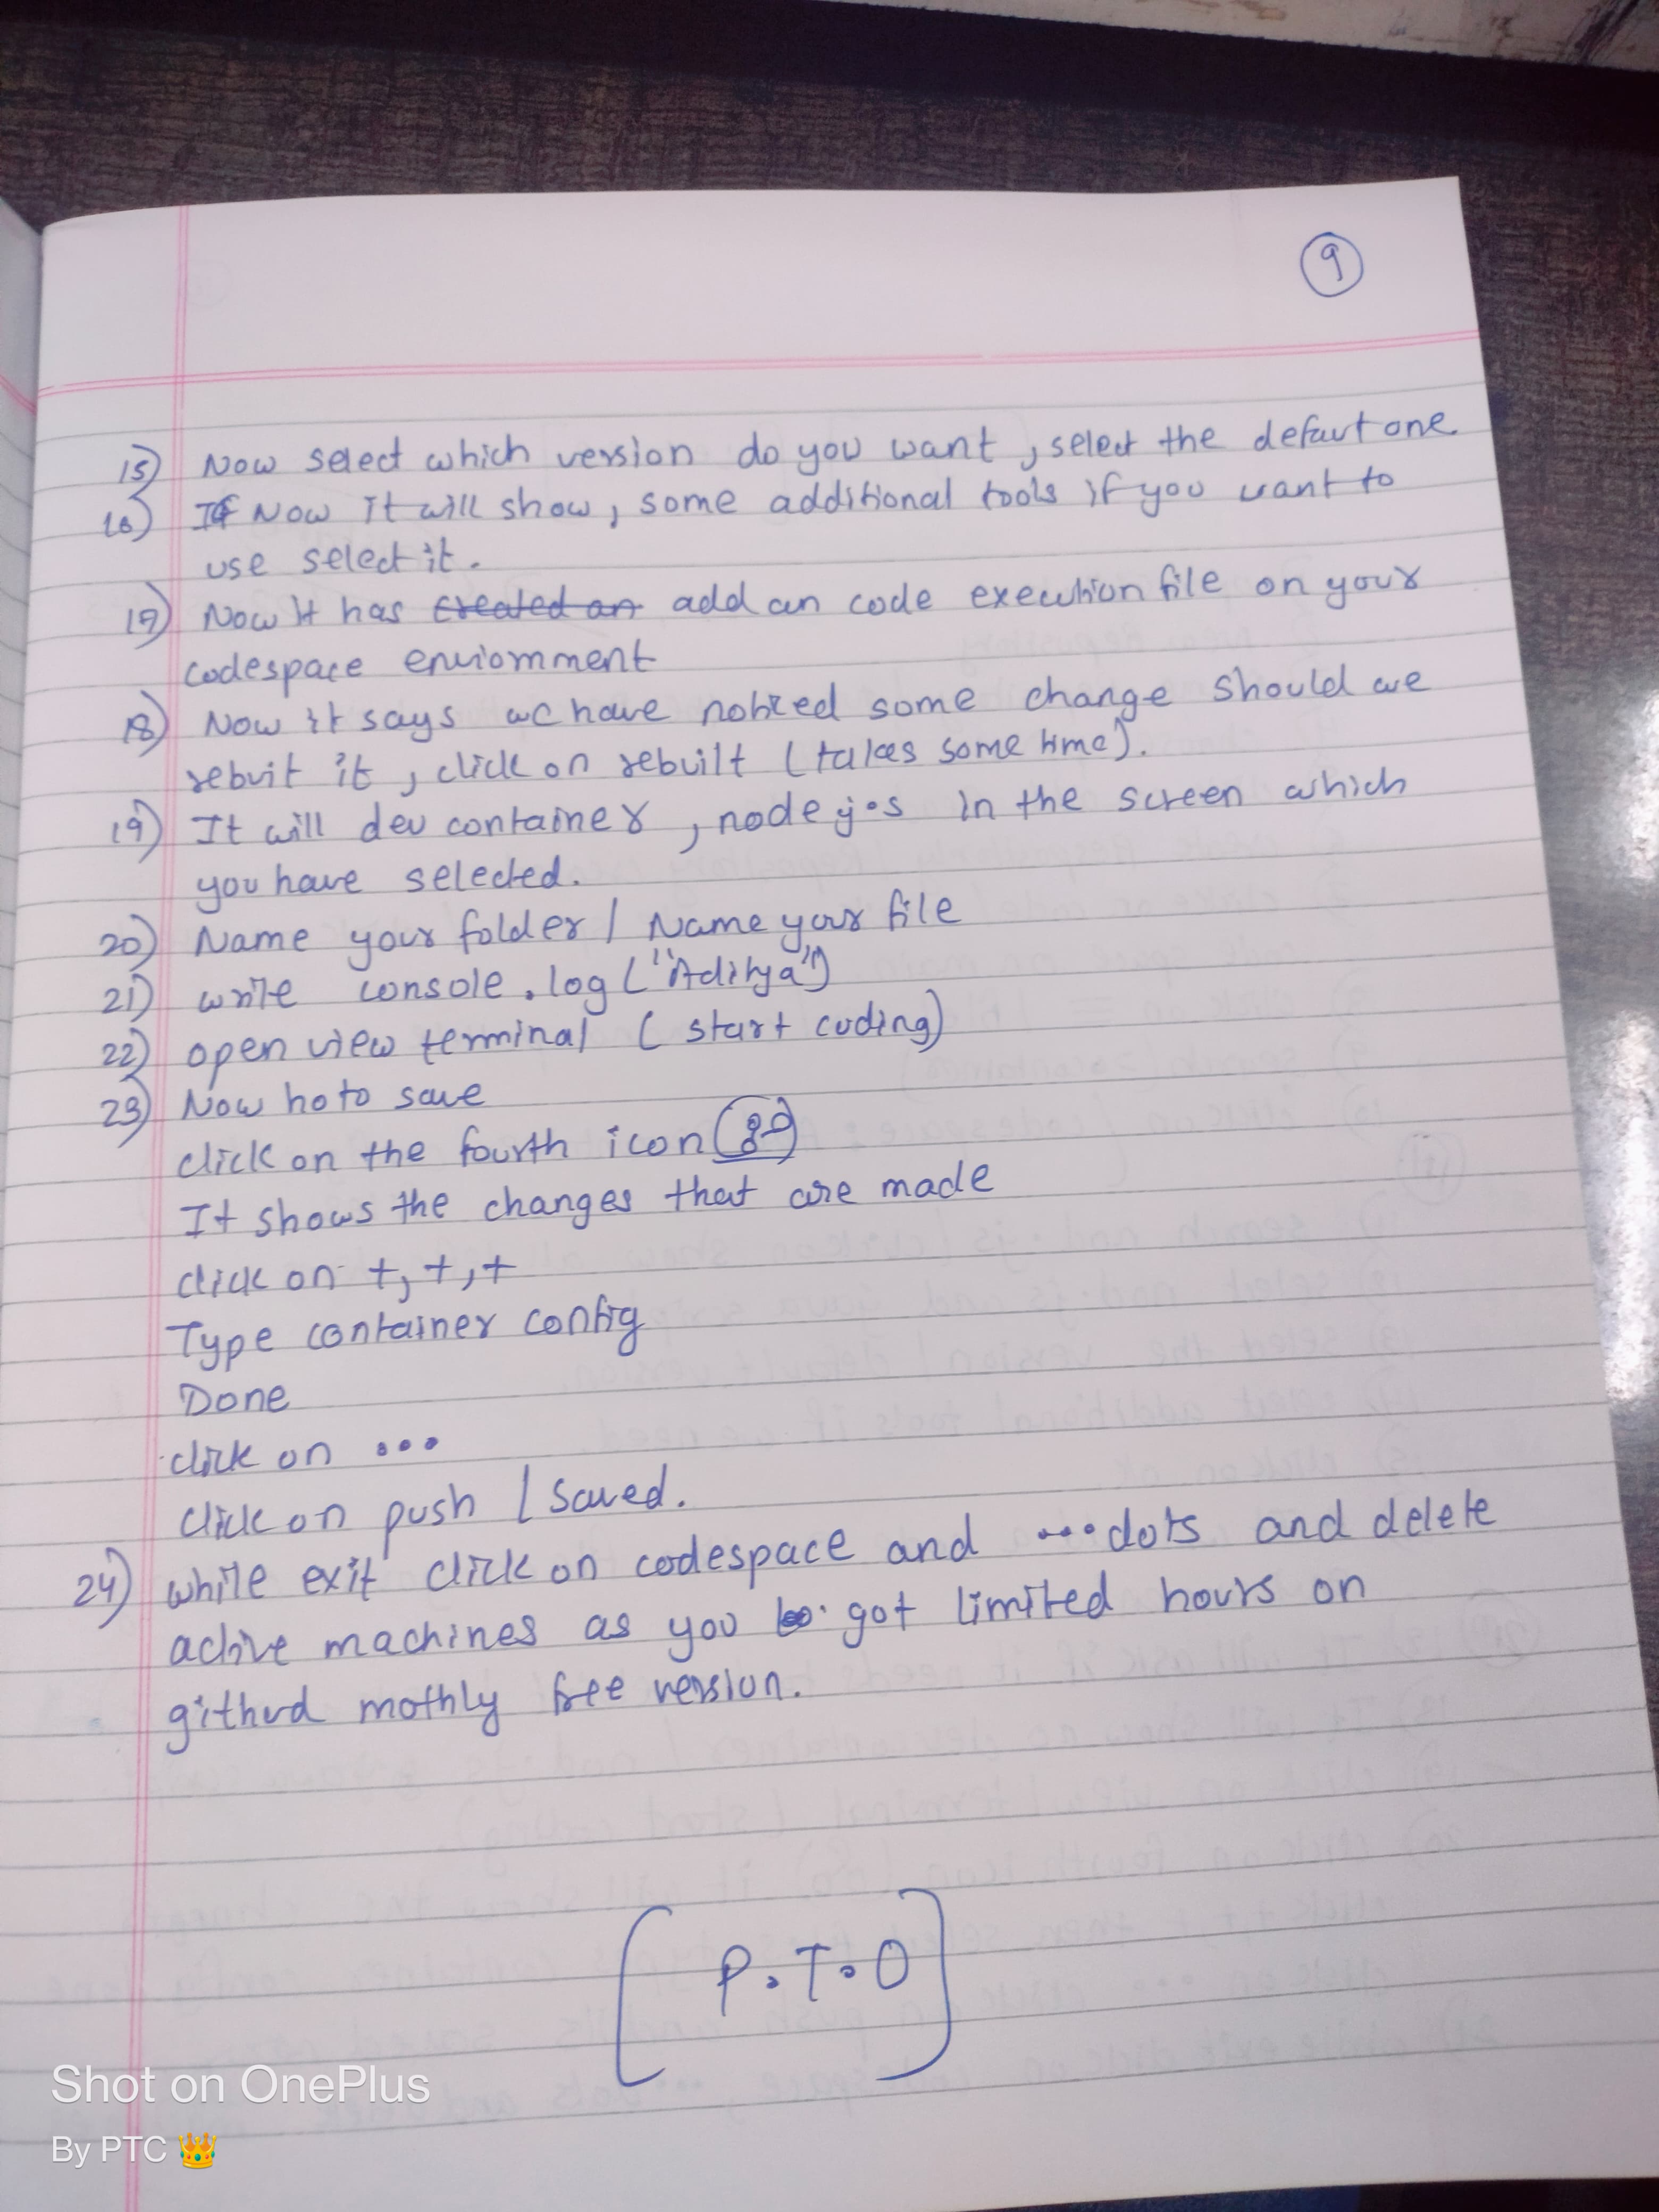 9
15) Now select which version do you want, select the defaut one.
16) If Now it will show, some additional tools if you want to
use select it.
17) Now it has created an add an code execution file on your
codespace enviornment
18) Now it says we have noticed some change should we
rebuit it, click on rebuilt (takes some time).
19) It will dev container, node j.s in the screen which
you have selected.
20) Name your folder / Name your file
21) write console.log("Aditya")
22) open view terminal (start coding)
23) Now ho to save
click on the fourth icon
It shows the changes that are made
click on +, +, +
Type container config
Done
click on ...
click on push / saved.
24) while exit click on codespace and ... dots and delete
active machines as you got limited hours on
githud mothly free version.
[P.T.O]
Shot on OnePlus
By PTC 👑